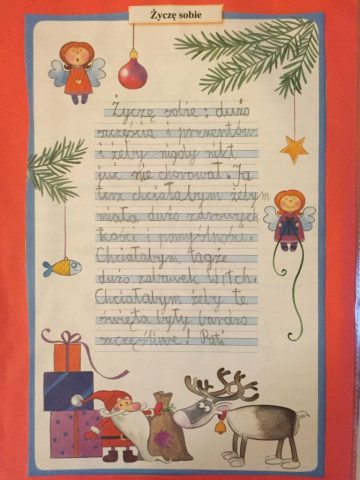 Życzę sobie
Życzę sobie: dużo
szczęścia i prezentów
i żeby nigdy nikt
już nie chorował. Ja
tesz chciałabym żebym
miała dużo zdrowych
i pomyślności.
Chciałabym
dużo zabawek Witch.
Chciałabym żeby te
święta były bardzo
szczęśliwe!